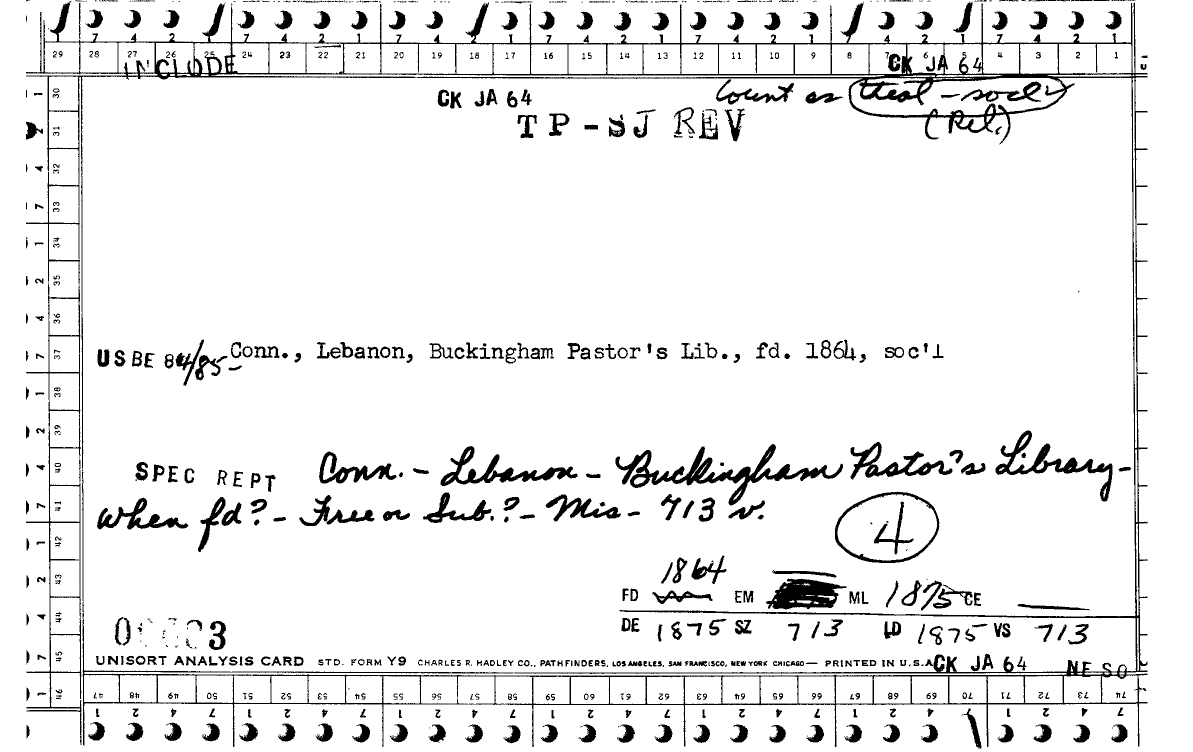 7 4 2 1 7 4 2 1 7 4 2 1 7 4 2 1 7 4 2 1 7 4 2 1 7 4 2 1
29 28 27 26 25 24 23 22 21 20 19 18 17 16 15 14 13 12 11 10 9 8 7 6 5 4 3 2 1
INCLUDE CK JA 64
CK JA 64 Count as theol-socl
TP-SJ REV (Rel.)
1 30
2 31
4 32
7 33
1 34
2 35
4 36
7 37
USBE 84/85- Conn., Lebanon, Buckingham Pastor's Lib., fd. 1864, soc'l
1 38
2 39
4 40
SPEC REPT Conn. - Lebanon - Buckingham Pastor's Library-
7 41
when fd? - Free or Sub.? - Mis - 713 v.
4
1 42
2 43
1864
FD EM ML 1875 CE
4 44
DE 1875 SZ 713 LD 1875 VS 713
3
7 45
UNISORT ANALYSIS CARD STD. FORM Y9 CHARLES R. HADLEY CO., PATHFINDERS, LOS ANGELES, SAN FRANCISCO, NEW YORK CHICAGO — PRINTED IN U.S.A. CK JA 64 NE SO
1 46
47 48 49 50 51 52 53 54 55 56 57 58 59 60 61 62 63 64 65 66 67 68 69 70 71 72 73 74
1 2 4 7 1 2 4 7 1 2 4 7 1 2 4 7 1 2 4 7 1 2 4 7 1 2 4 7